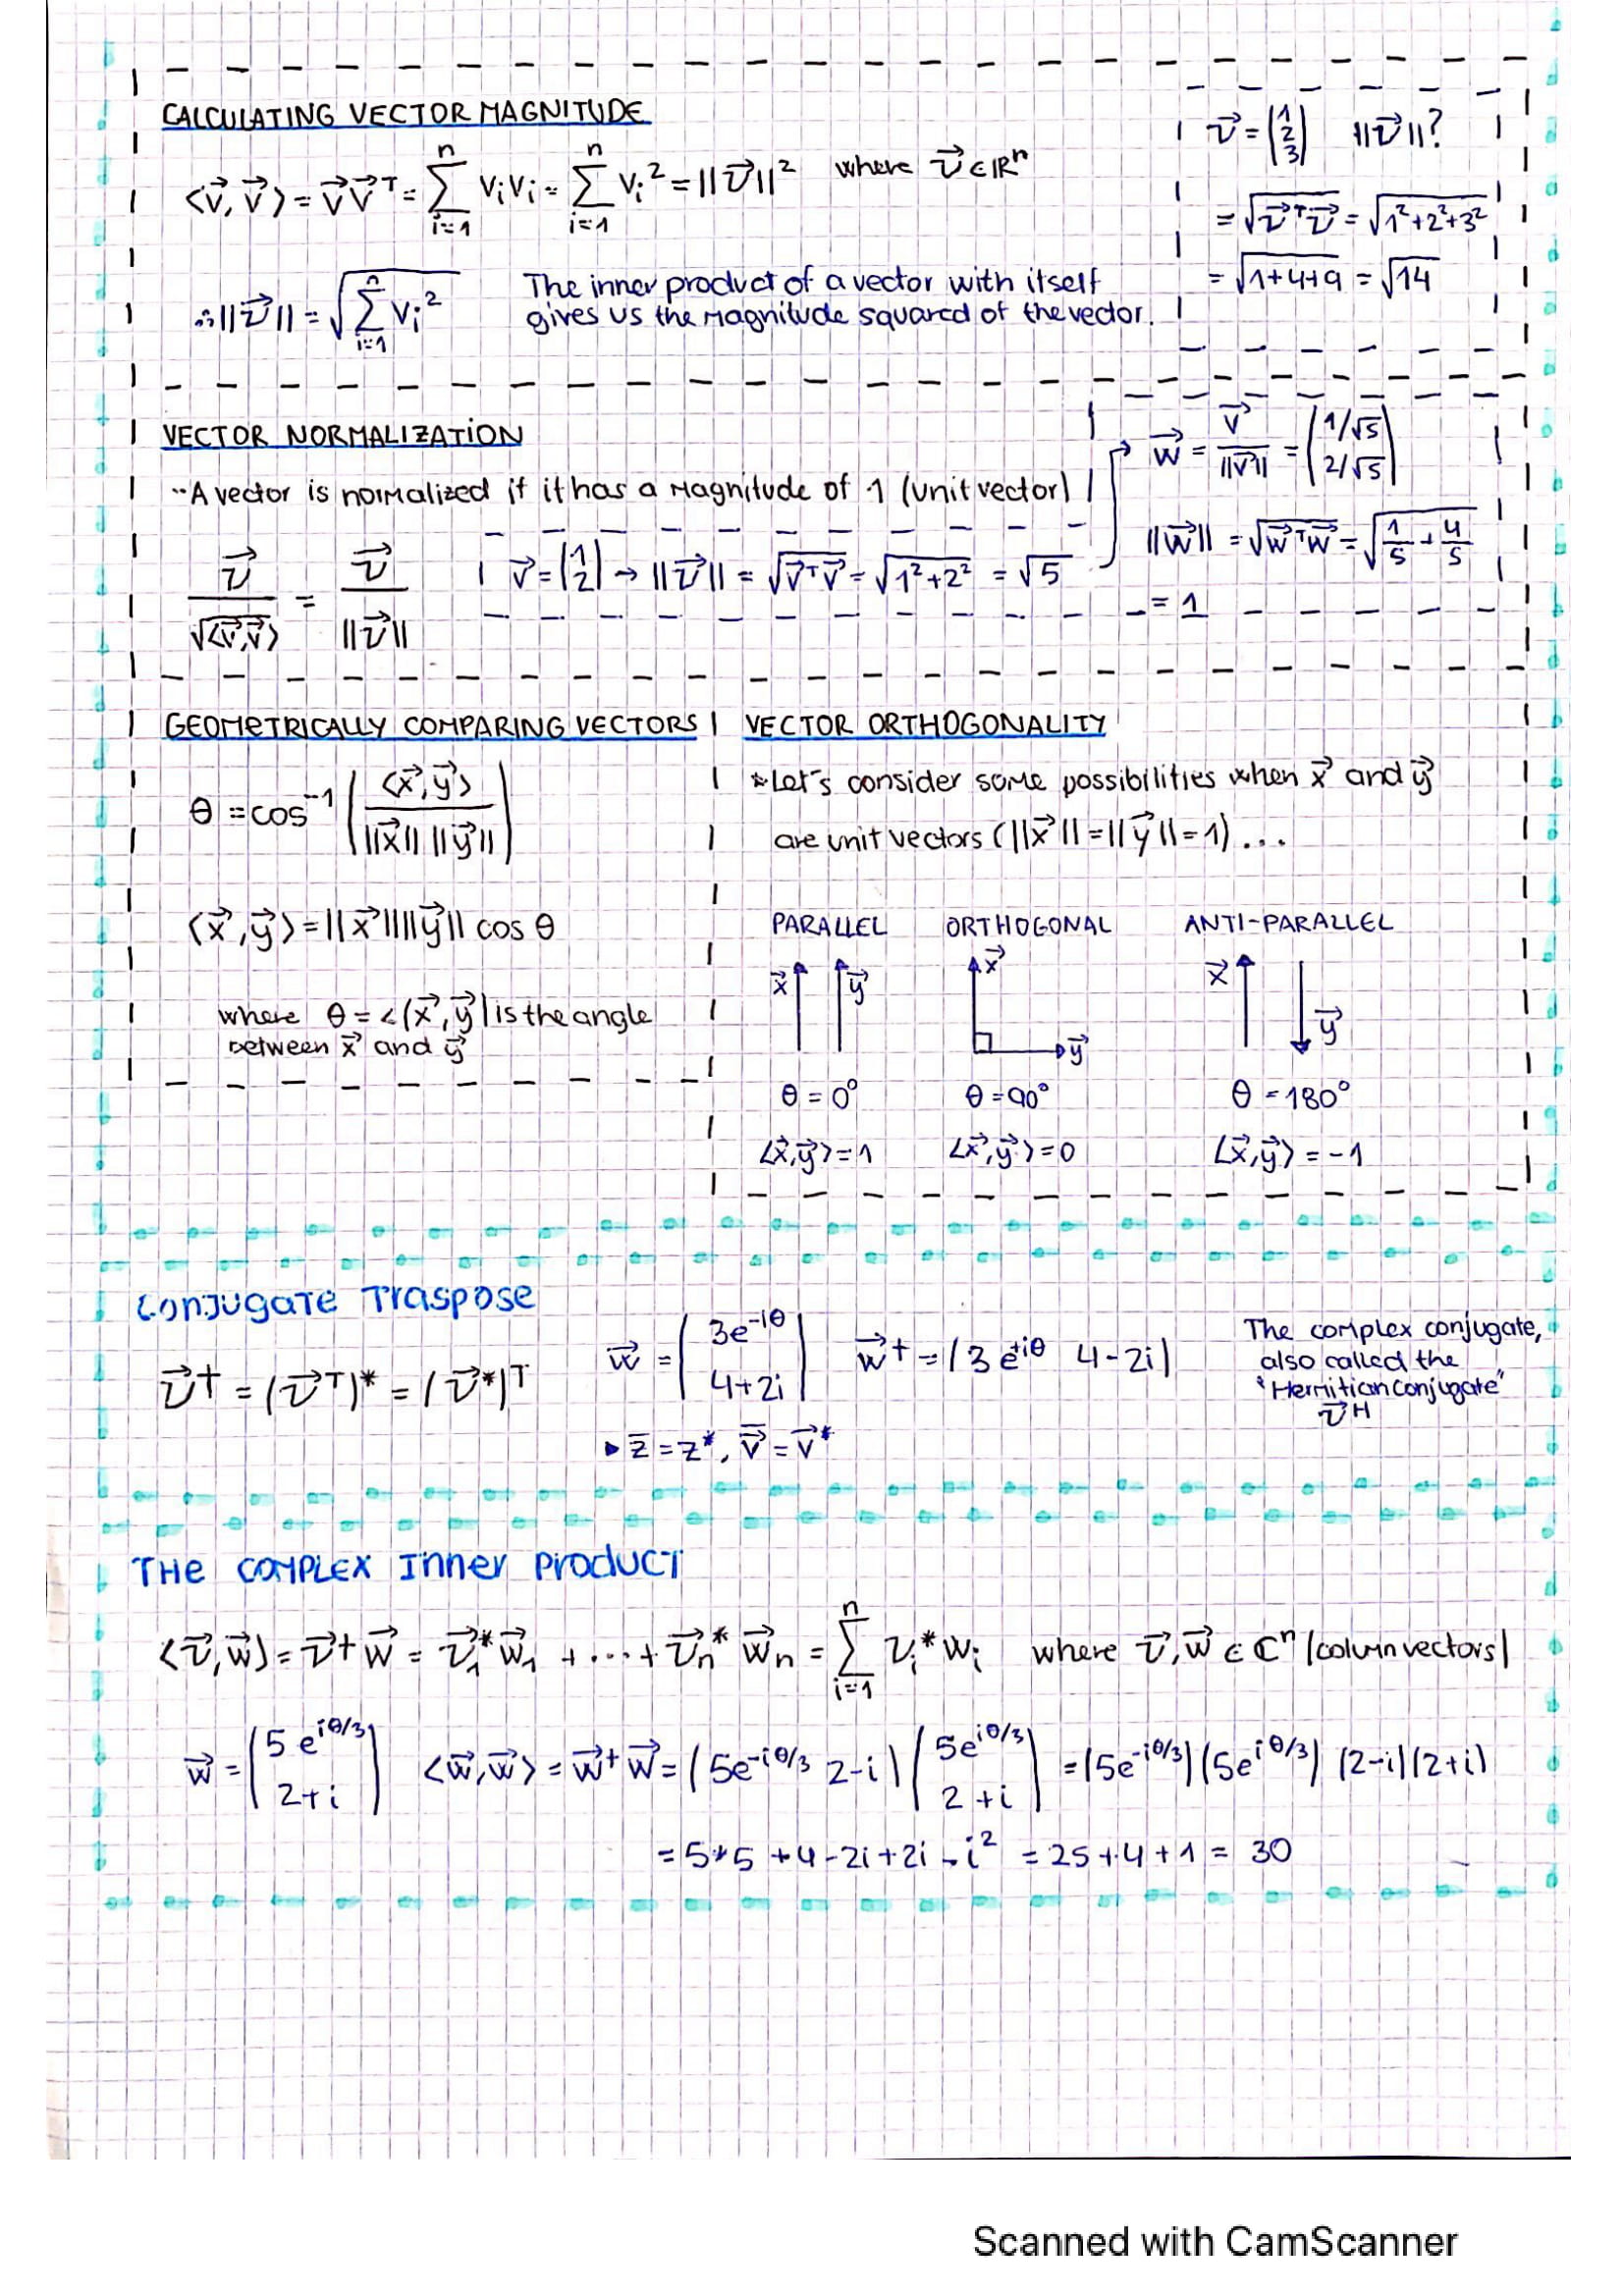 CALCULATING VECTOR MAGNITUDE
⟨v⃗, v⃗⟩ = v⃗v⃗ᵀ = ∑ᵢ₌₁ⁿ vᵢvᵢ = ∑ᵢ₌₁ⁿ vᵢ² = ||v⃗||² where v⃗ ∈ ℝⁿ
∴ ||v⃗|| = √(∑ᵢ₌₁ⁿ vᵢ²)
The inner product of a vector with itself
gives us the magnitude squared of the vector.
v⃗ = (1 2 3) ||v⃗||?
= √(v⃗ᵀv⃗) = √(1²+2²+3²)
= √(1+4+9) = √14
VECTOR NORMALIZATION
A vector is normalized if it has a magnitude of 1 (unit vector)
v⃗/√⟨v⃗,v⃗⟩ = v⃗/||v⃗||
v⃗ = (1 2) → ||v⃗|| = √(v⃗ᵀv⃗) = √(1²+2²) = √5
w⃗ = v⃗/||v⃗|| = (1/√5 2/√5)
||w⃗|| = √(w⃗ᵀw⃗) = √(1/5 + 4/5)
= 1
GEOMETRICALLY COMPARING VECTORS
θ = cos⁻¹(⟨x⃗,y⃗⟩ / ||x⃗|| ||y⃗||)
⟨x⃗,y⃗⟩ = ||x⃗|| ||y⃗|| cos θ
where θ = ∠(x⃗,y⃗) is the angle
between x⃗ and y⃗
VECTOR ORTHOGONALITY
*Let's consider some possibilities when x⃗ and y⃗
are unit vectors (||x⃗|| = ||y⃗|| = 1) ...
PARALLEL ORTHOGONAL ANTI-PARALLEL
x⃗ y⃗ x⃗ y⃗ x⃗ y⃗
θ = 0° θ = 90° θ = 180°
⟨x⃗,y⃗⟩ = 1 ⟨x⃗,y⃗⟩ = 0 ⟨x⃗,y⃗⟩ = -1
Conjugate Traspose
v⃗† = (v⃗ᵀ)* = (v⃗*)ᵀ
w⃗ = (3e^-iθ 4+2i) w⃗† = (3e^+iθ 4-2i)
▸ z̄ = z*, v̄⃗ = v⃗*
The complex conjugate,
also called the
"Hermitian conjugate"
v⃗ᴴ
THE COMPLEX Inner product
⟨v⃗,w⃗⟩ = v⃗†w⃗ = v⃗₁*w⃗₁ + ... + v⃗ₙ*w⃗ₙ = ∑ᵢ₌₁ⁿ vᵢ*wᵢ where v⃗,w⃗ ∈ ℂⁿ (column vectors)
w⃗ = (5e^iθ/3 2+i) ⟨w⃗,w⃗⟩ = w⃗†w⃗ = (5e^-iθ/3 2-i)(5e^iθ/3 2+i) = (5e^-iθ/3)(5e^iθ/3) (2-i)(2+i)
= 5*5 + 4 - 2i + 2i - i² = 25 + 4 + 1 = 30
Scanned with CamScanner